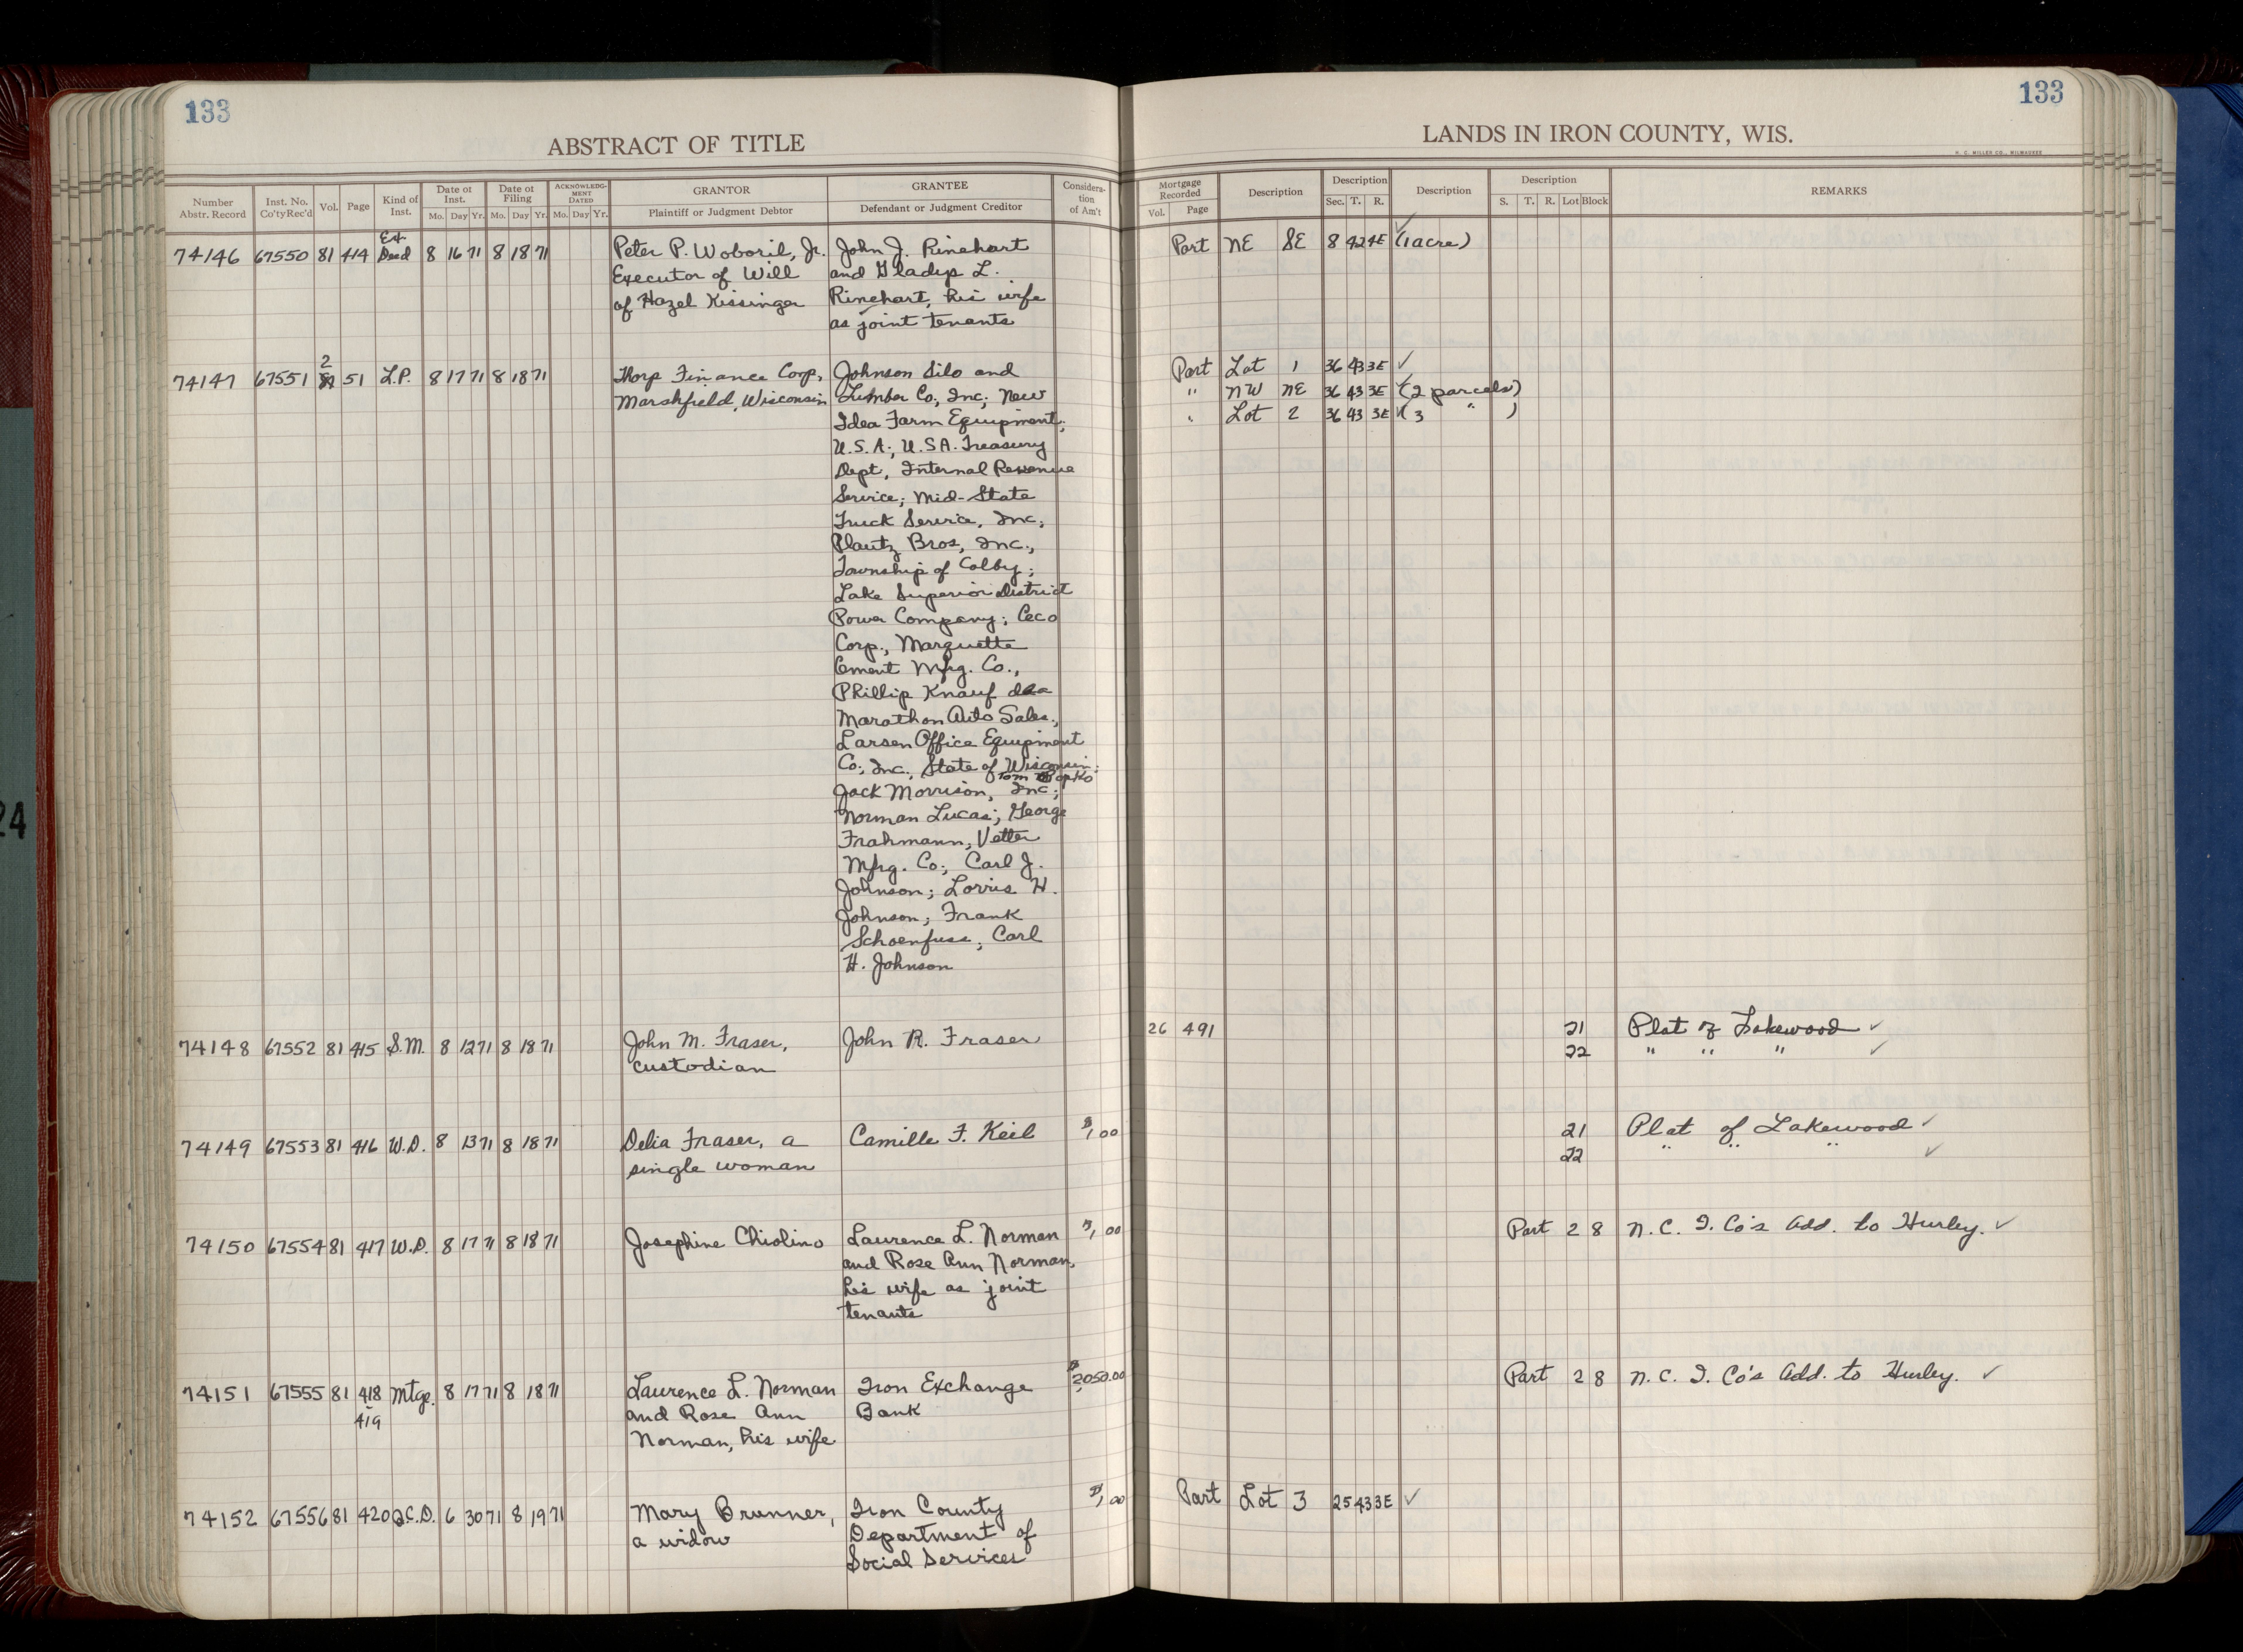 133
ABSTRACT OF TITLE
Number Abstr. Record | Inst. No. Co'ty Rec'd | Vol. | Page | Kind of Inst. | Date of Inst. Mo. Day Yr. | Date of Filing Mo. Day Yr. | ACKNOWLEDGMENT DATED Mo. Day Yr. | GRANTOR Plaintiff or Judgment Debtor | GRANTEE Defendant or Judgment Creditor | Consideration of Am't
74146 67550 81 414 Ex. Deed 8 16 71 8 18 71 Peter P. Woboril, Jr. John J. Rinehart
Executor of Will and Gladys L.
of Hazel Kissinger Rinehart, his wife
as joint tenants
74147 67551 2 51 L.P. 8 17 71 8 18 71 Thorp Finance Corp, Johnson Silo and
Marshfield, Wisconsin Lumber Co., Inc; New
Idea Farm Equipment;
U.S.A.; U.S.A. Treasury
Dept, Internal Revenue
Service; Mid-State
Truck Service, Inc;
Plautz Bros, Inc.,
Township of Colby;
Lake Superior District
Power Company; Ceco
Corp., Marquette
Cement Mfg. Co.,
Phillip Knauf dba
Marathon Auto Sales.,
Larsen Office Equipment
Co; Inc., State of Wisconsin;
Tom Popko
Jack Morrison, Inc;
Norman Lucas; George
Frahmann, Vetter
Mfg. Co; Carl J.
Johnson; Lorris H.
Johnson; Frank
Schoenfuss, Carl
H. Johnson
74148 67552 81 415 S.M. 8 12 71 8 18 71 John M. Fraser, John R. Fraser
custodian
74149 67553 81 416 W.D. 8 13 71 8 18 71 Delia Fraser, a Camille F. Keil $1.00
single woman
74150 67554 81 417 W.D. 8 17 71 8 18 71 Josephine Chiolino Laurence L. Norman $1.00
and Rose Ann Norman,
his wife as joint
tenants
74151 67555 81 418 - 419 Mtge. 8 17 71 8 18 71 Laurence L. Norman Iron Exchange $2050.00
and Rose Ann Bank
Norman, his wife
74152 67556 81 420 Q.C.D. 6 30 71 8 19 71 Mary Brunner, Iron County $1.00
a widow Department of
Social Services
133
LANDS IN IRON COUNTY, WIS.
H. C. MILLER CO., MILWAUKEE
Mortgage Recorded Vol. Page | Description | Description Sec. T. R. | Description | Description S. T. R. Lot Block | REMARKS
Part NE SE 8 42 4E ✓ (1 acre)
Part Lot 1 36 43 3E ✓
" NW NE 36 43 3E ✓ (2 parcels)
" Lot 2 36 43 3E ✓ (3 " )
26 491 21 Plat of Lakewood ✓
22 " " " ✓
21 Plat of Lakewood ✓
22 " " " ✓
Part 2 8 N.C. I. Co's Add. to Hurley. ✓
Part 2 8 N.C. I. Co's Add. to Hurley. ✓
Part Lot 3 25 43 3E ✓
24